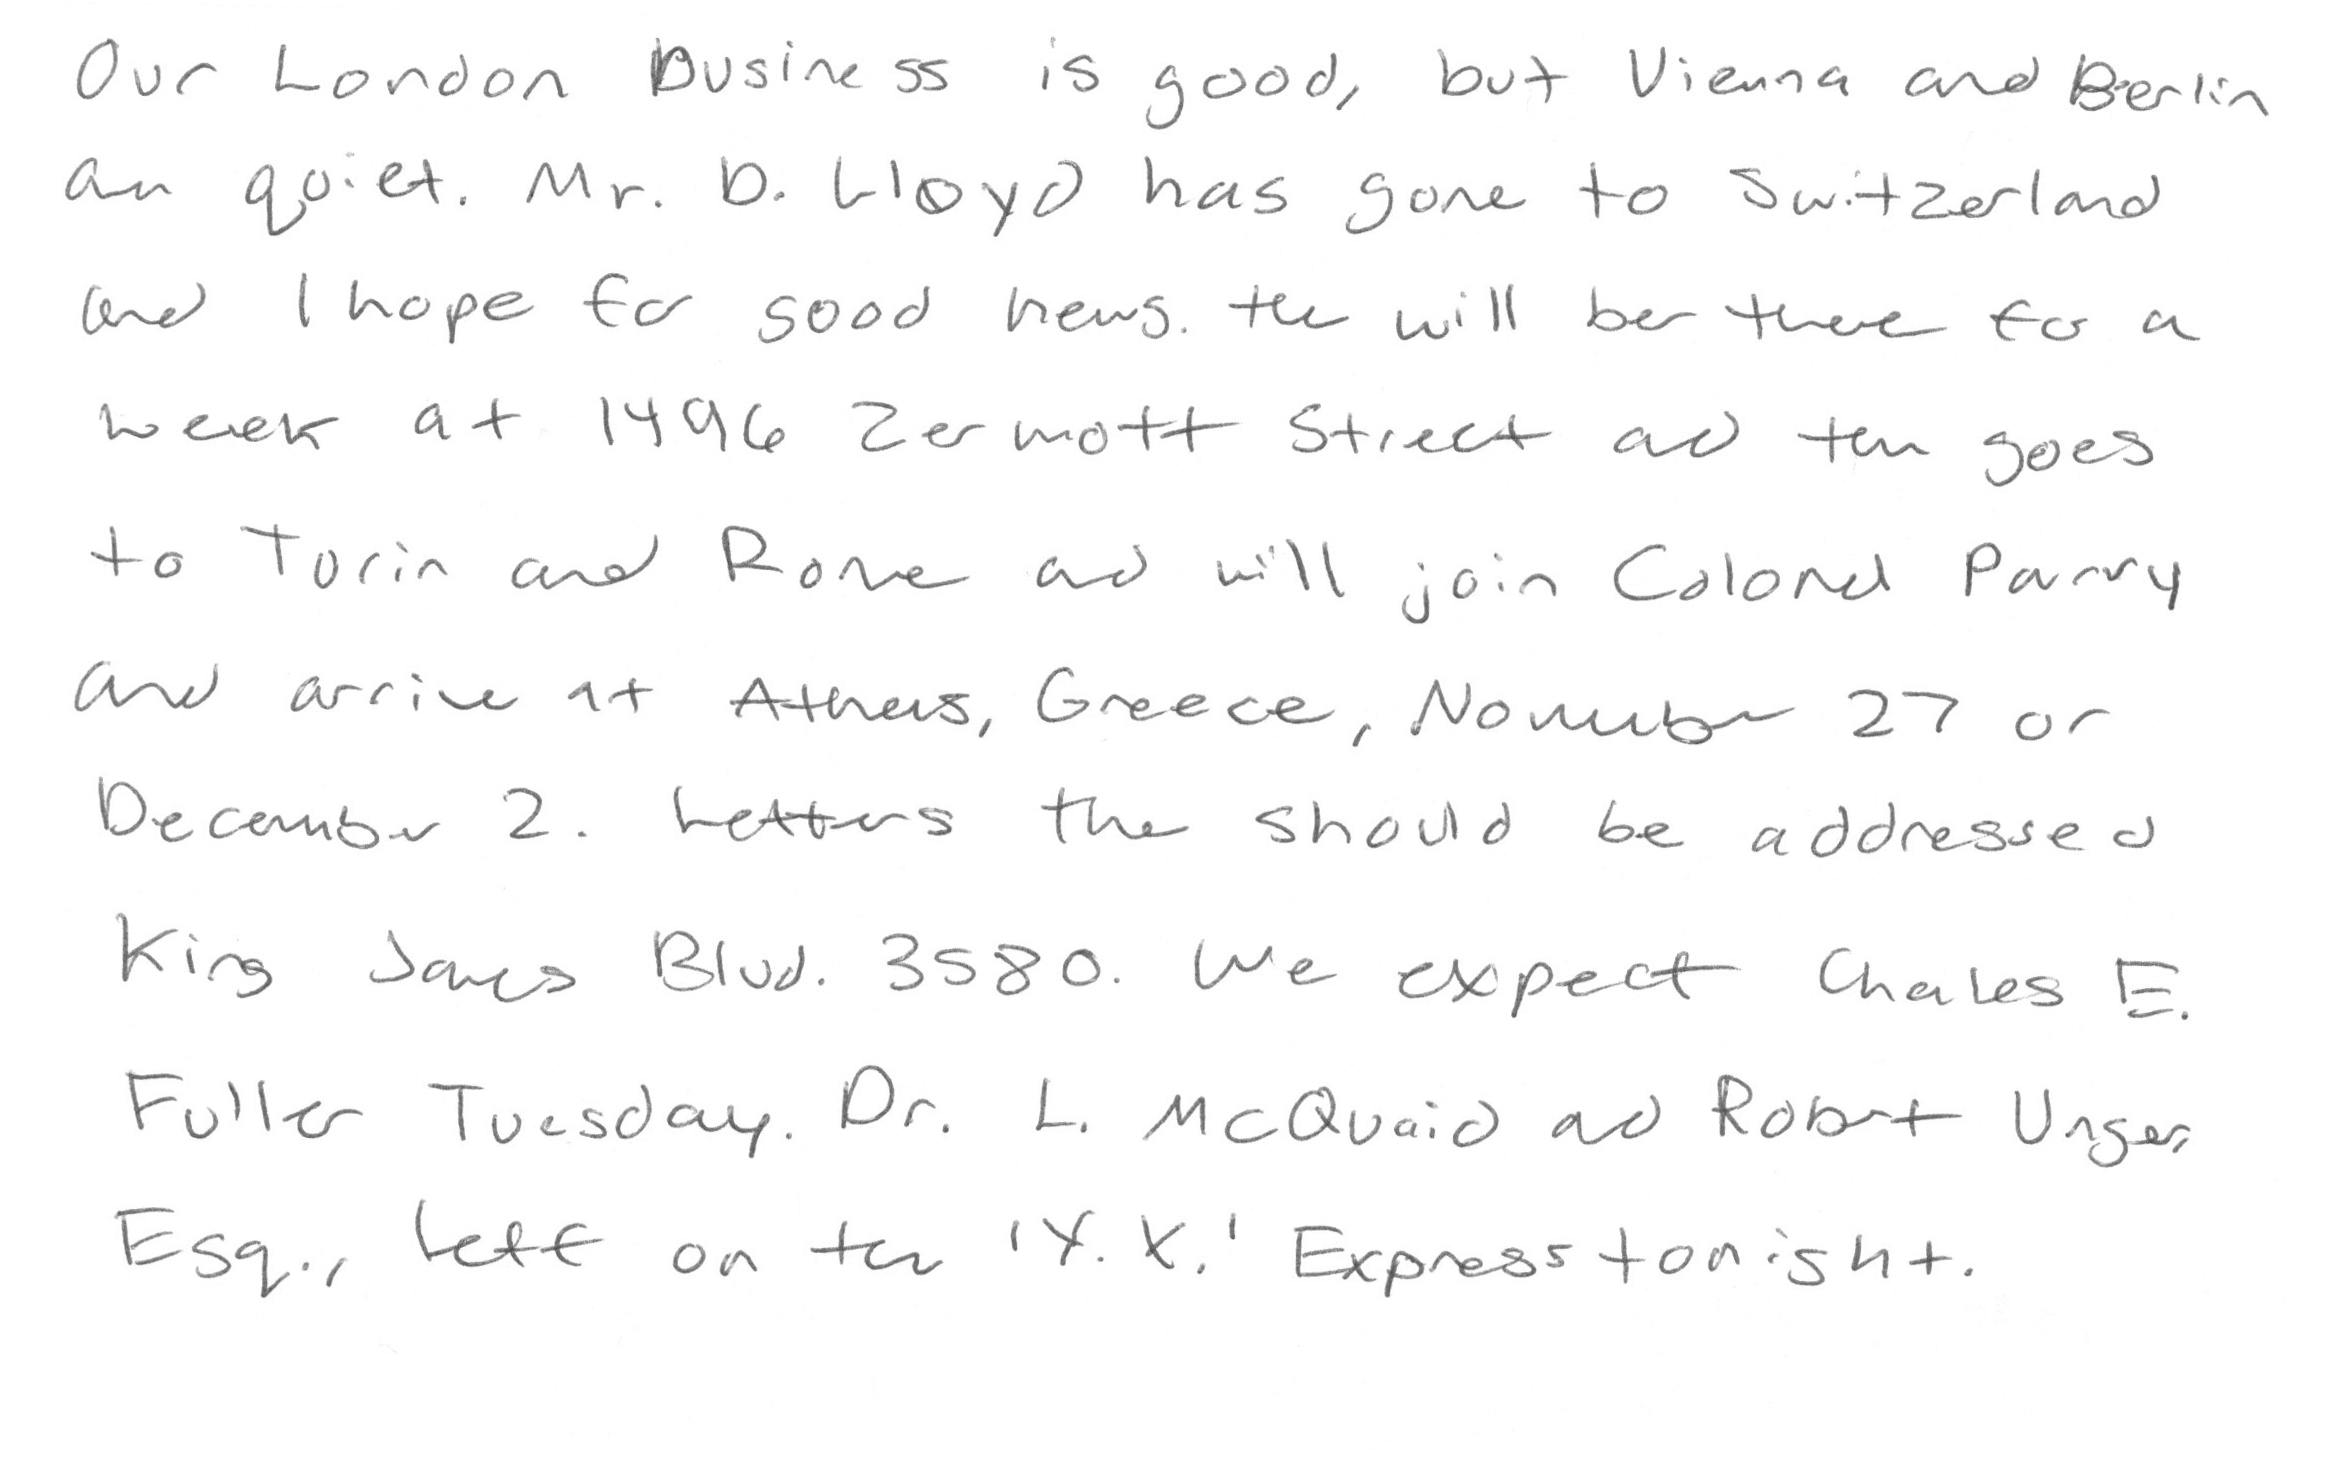 Our London Business is good, but Vienna and Berlin
are quiet. Mr. D. Lloyd has gone to Switzerland
and I hope for good news. He will be there for a
week at 1496 Zermott Street and then goes
to Turin and Rome and will join Colonel Parry
and arrive at Athens, Greece, November 27 or
December 2. Letters there should be addressed
King James Blvd. 3580. We expect Charles E.
Fuller Tuesday. Dr. L. McQuaid and Robert Unger,
Esq., left on the 'Y.X.' Express tonight.